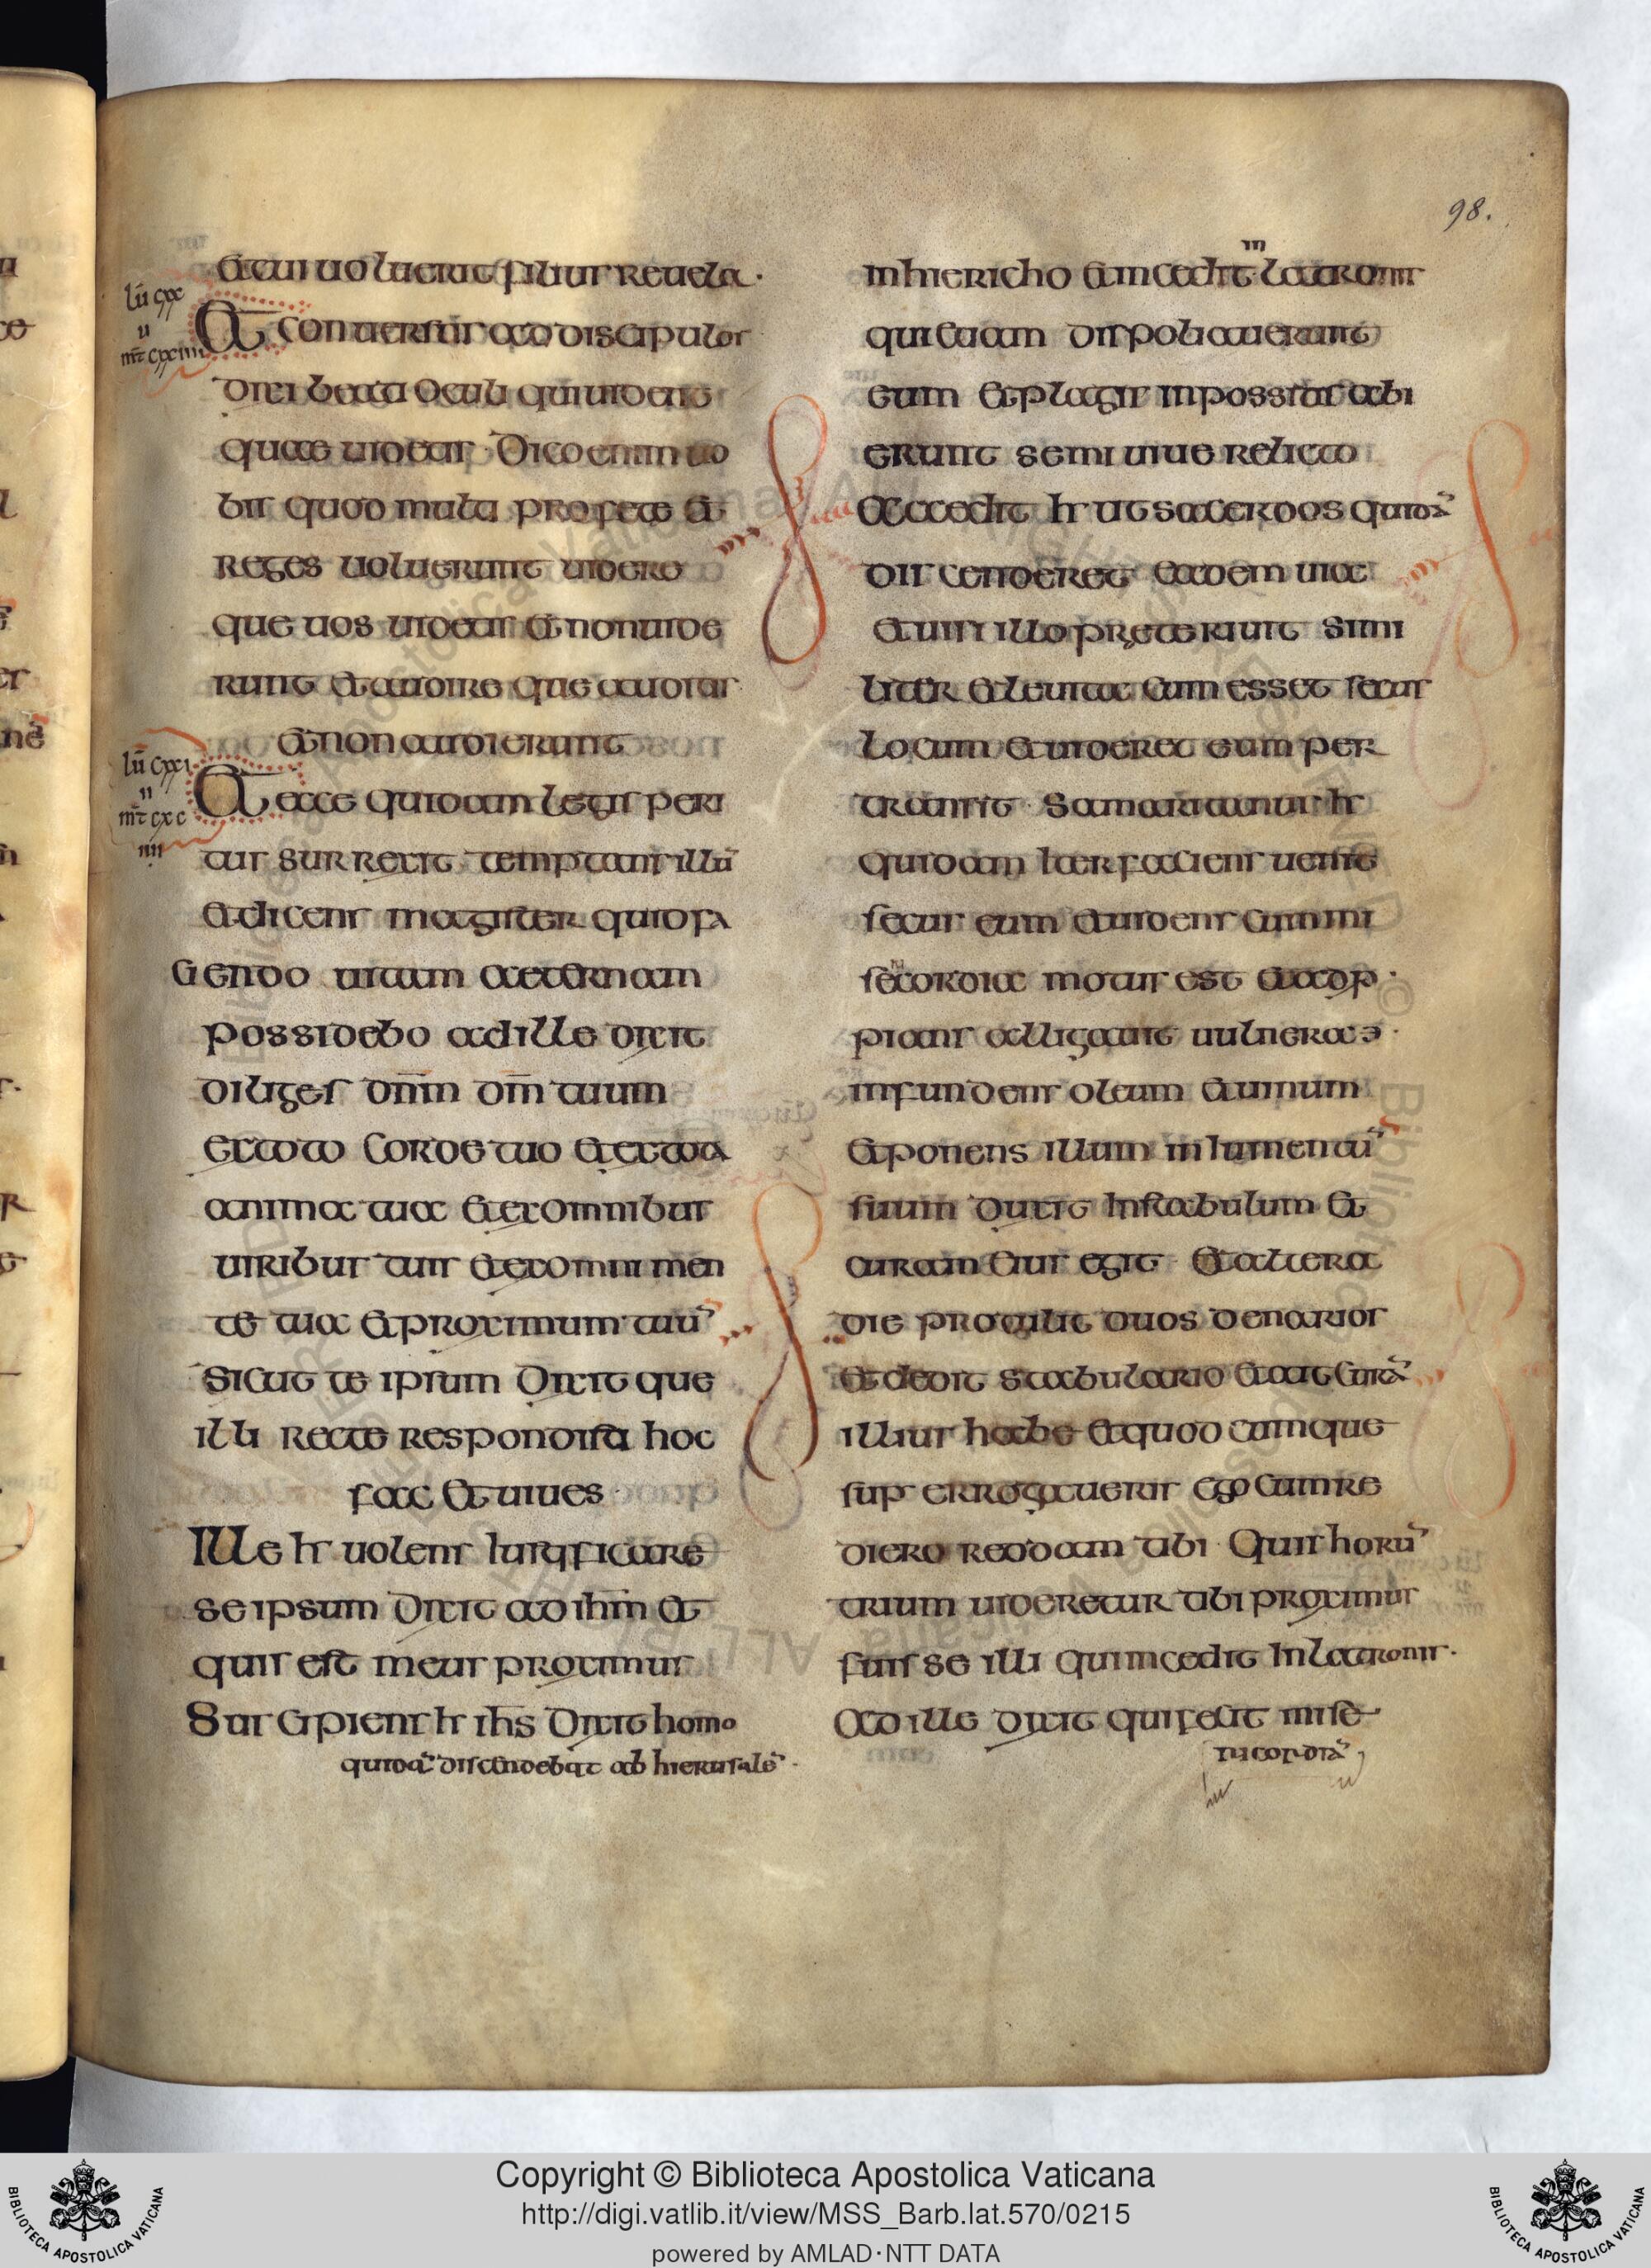 98.
et cui uoluerit filius reuela·
lū cxx
u
mt̄ cxxiiii
Et conuersus ad discipulos
dixi beati oculi qui uident
quae uidetis Dico enim uo
bis quod multi profete et
reges uoluerunt uidere
que uos uidetis et non uide
runt et audire que auditis
et non audierunt
lū cxxi
u
mt̄ cxc
iiii
Et ecce quidam legis peri
tus surrexit temptans illū
et dicens magister quid fa
ciendo uitam aeternam
possidebo ad ille dixit
diliges dn̄m dm̄ tuum
ex toto corde tuo et ex tota
anima tua et ex omnibus
uiribus tuis et ex omni men
te tua et proximum tuū
Sicut te ipsum Dixit que
illi recte respondisti hoc
fac et uiues
Ille h̄ uolens iustificare
se ipsum Dixit ad ih̄m et
quis est meus proximus
Suscipiens h̄ ih̄s Dixit homo
quidā discendebat ab hierusalē·
in hiericho et incedit latronis
in
qui etiam dispoliauerunt
eum et plagis inpossitis abi
erunt semi uiue relicto
Accedit h̄ ut sacerdos quidā
discenderet eadem uia
et uisi illo preteriuit simi
liter et leuita cum esset secus
locum et uideret eum per
transit Samaritanus h̄
quidam iter faciens uenit
secus eum et uidens cum mi
secordia motus est et adp·
ri
pians alligauit uulnera ·
infundens oleum et uinum
et ponens illum in iumentū
suum duxit in stabulum et
curam eius egit et altera
die protulit duos denarios
et dedit stabulario et ait curā
illius habe et quod cumque
sup erogaueris ego cum re
diero reddam tibi Quis horū
trium uideretur tibi proximus
fuisse illi qui incedit in latronis·
Ad ille dixit qui fecit mise
ricordiā
Copyright © Biblioteca Apostolica Vaticana
http://digi.vatlib.it/view/MSS_Barb.lat.570/0215
powered by AMLAD·NTT DATA
BIBLIOTECA APOSTOLICA VATICANA
BIBLIOTECA APOSTOLICA VATICANA